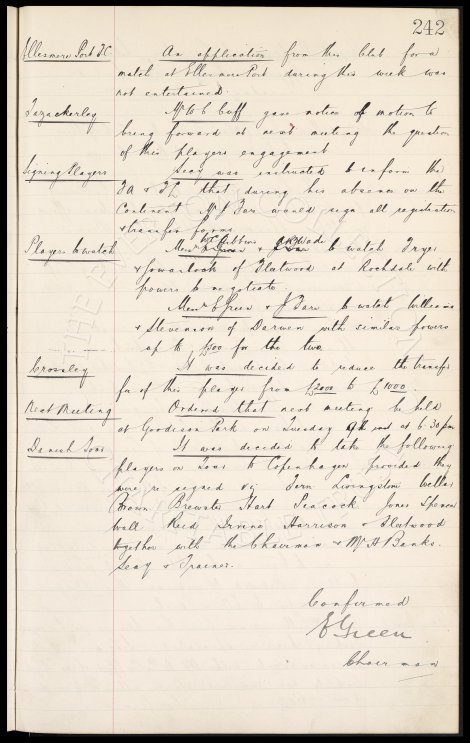 242
Ellesmere Port F.C. An application from this Club for a
match at Ellesmere Port during this week was
not entertained.
Fazackerley Mr W C Cuff gave notice of motion to
bring forward at next meeting the question
of this players engagement
Signing Players Secy was instructed to inform the
FA & FL that during his absence on the
Continent Mr J Fare would sign all registration
& transfer forms
Players to watch Messrs & Wade to watch Fryer
& Gowanlock of Fleetwood at Rochdale with
powers to negotiate.
Messrs E Green & J Fare to watch Williams
& Stevenson of Darwen with similar powers
up to £500 for the two
Crossley It was decided to reduce the transfer
fee of this player from £2000 to £1000.
Next Meeting Ordered that next meeting be held
at Goodison Park on Tuesday at 6.30 pm
Danish Tour It was decided to take the following
players on tour to Copenhagen provided they
were re-signed viz Fern Livingstone
Brewster Hart Peacock Jones Spencer
Wall Reid Irvine Harrison & Fleetwood
together with the Chairman & Mr H Banks.
Secy & Trainer.
Confirmed
E Green
Chairman